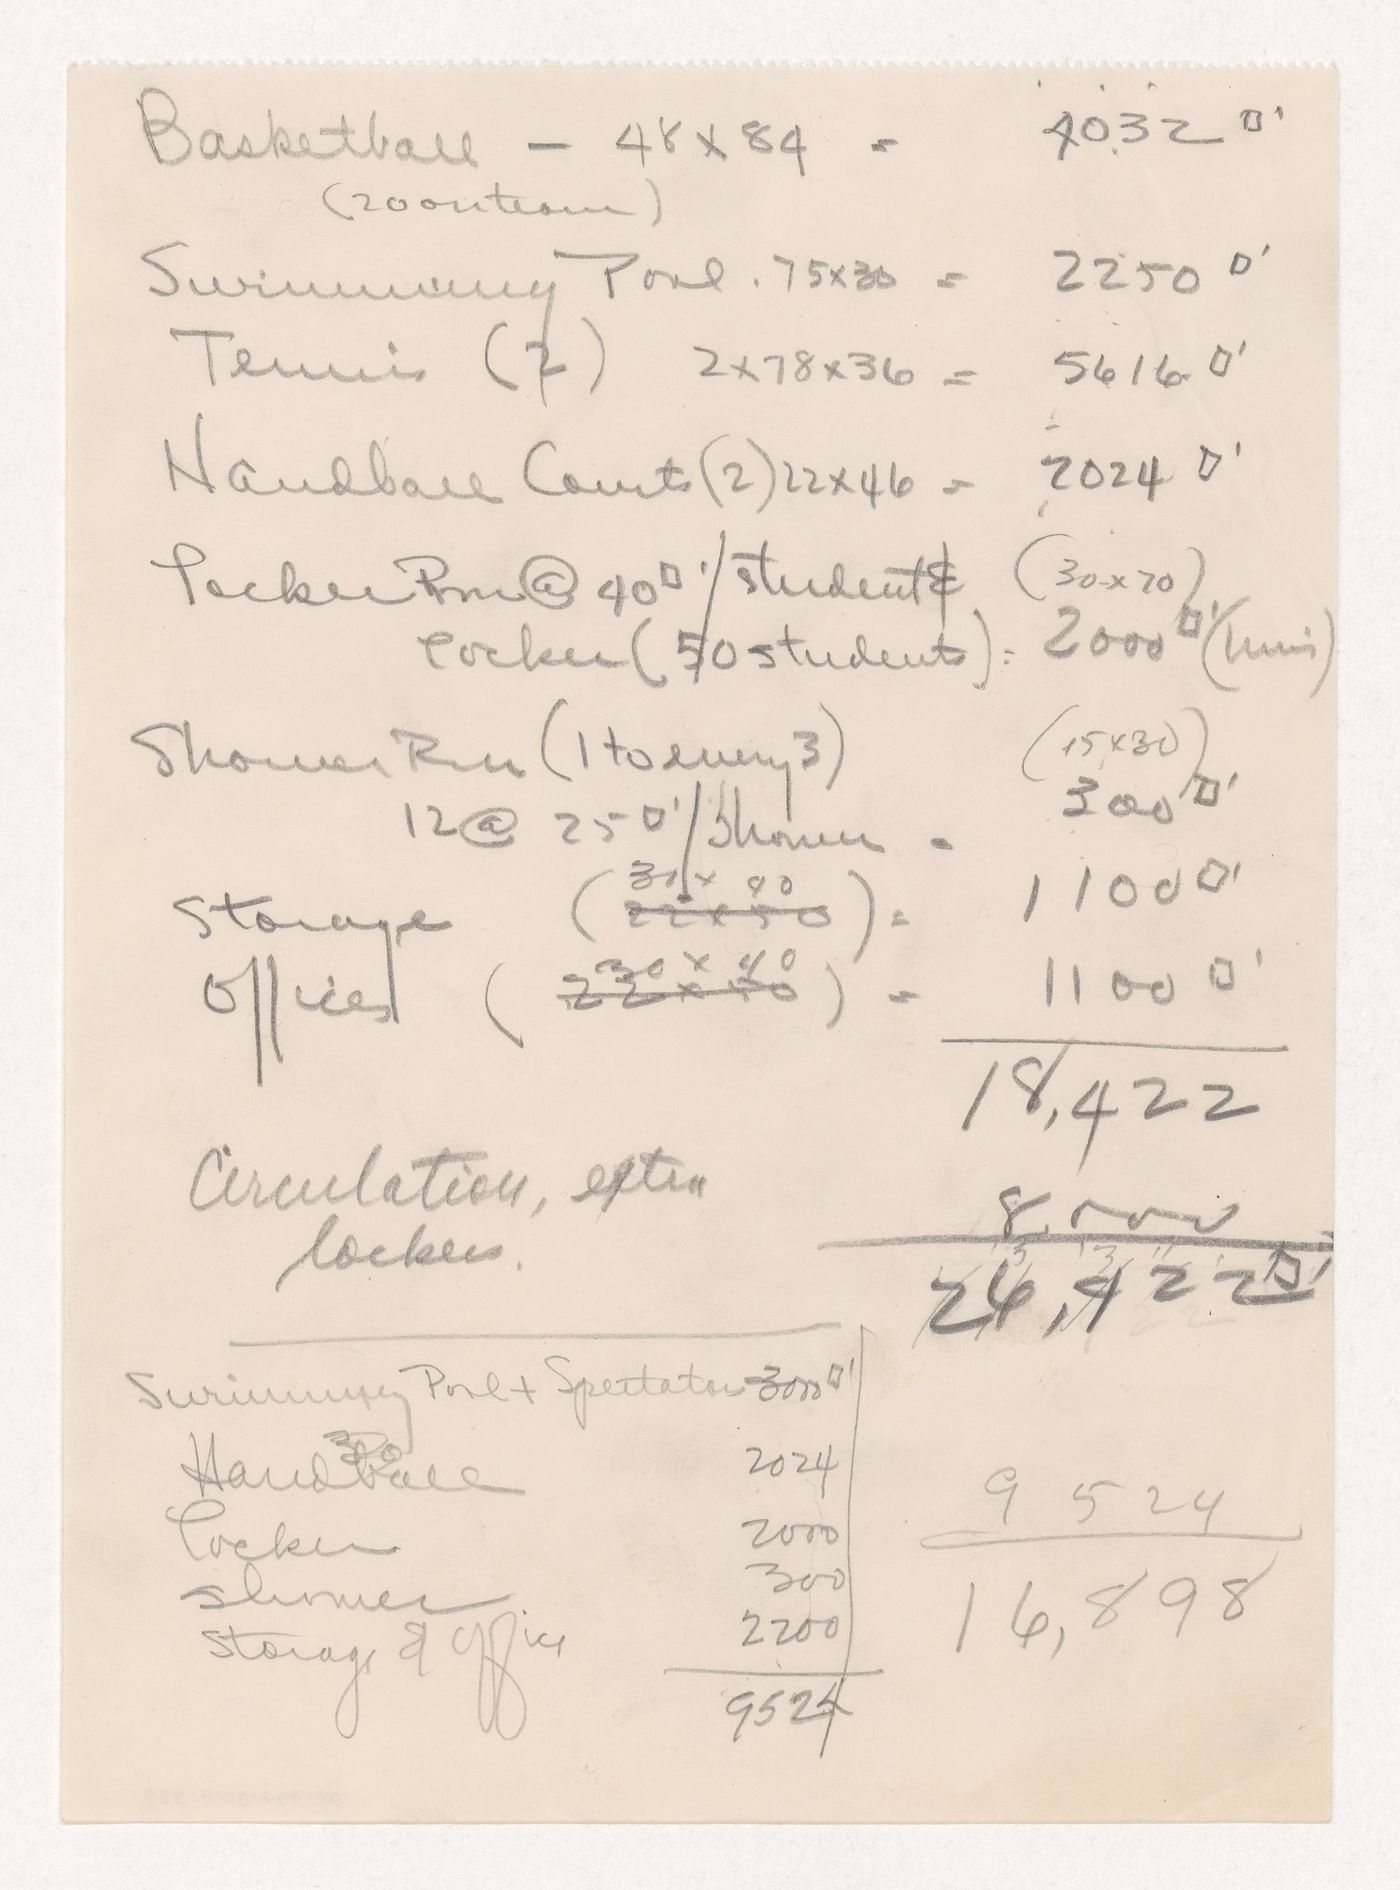 Basketball - 48 x 84 = 4032 □'
(20 on team)
Swimming Pool. 75x30 = 2250 □'
Tennis (2) 2x78x36 = 5616 □'
Handball Courts (2) 22x46 = 2024 □'
Locker Rm @ 40 □'/student & (30x70)
locker (50 students) = 2000 □' (
Shower Rm (1 to every 3) (15x30)
12 @ 25 □'/Shower = 300 □'
30 x 40
Storage (22 x 50) = 1100 □'
30 x 40
Offices (22 x 50) = 1100 □'
18,422
Circulation, extra 8,000
lockers. 26,422 □'
Swimming Pool + Spectators - 3000 □'
Handball 2024
9524
Locker 2000
shower 300
16,898
Storage & Offices 2200
9524